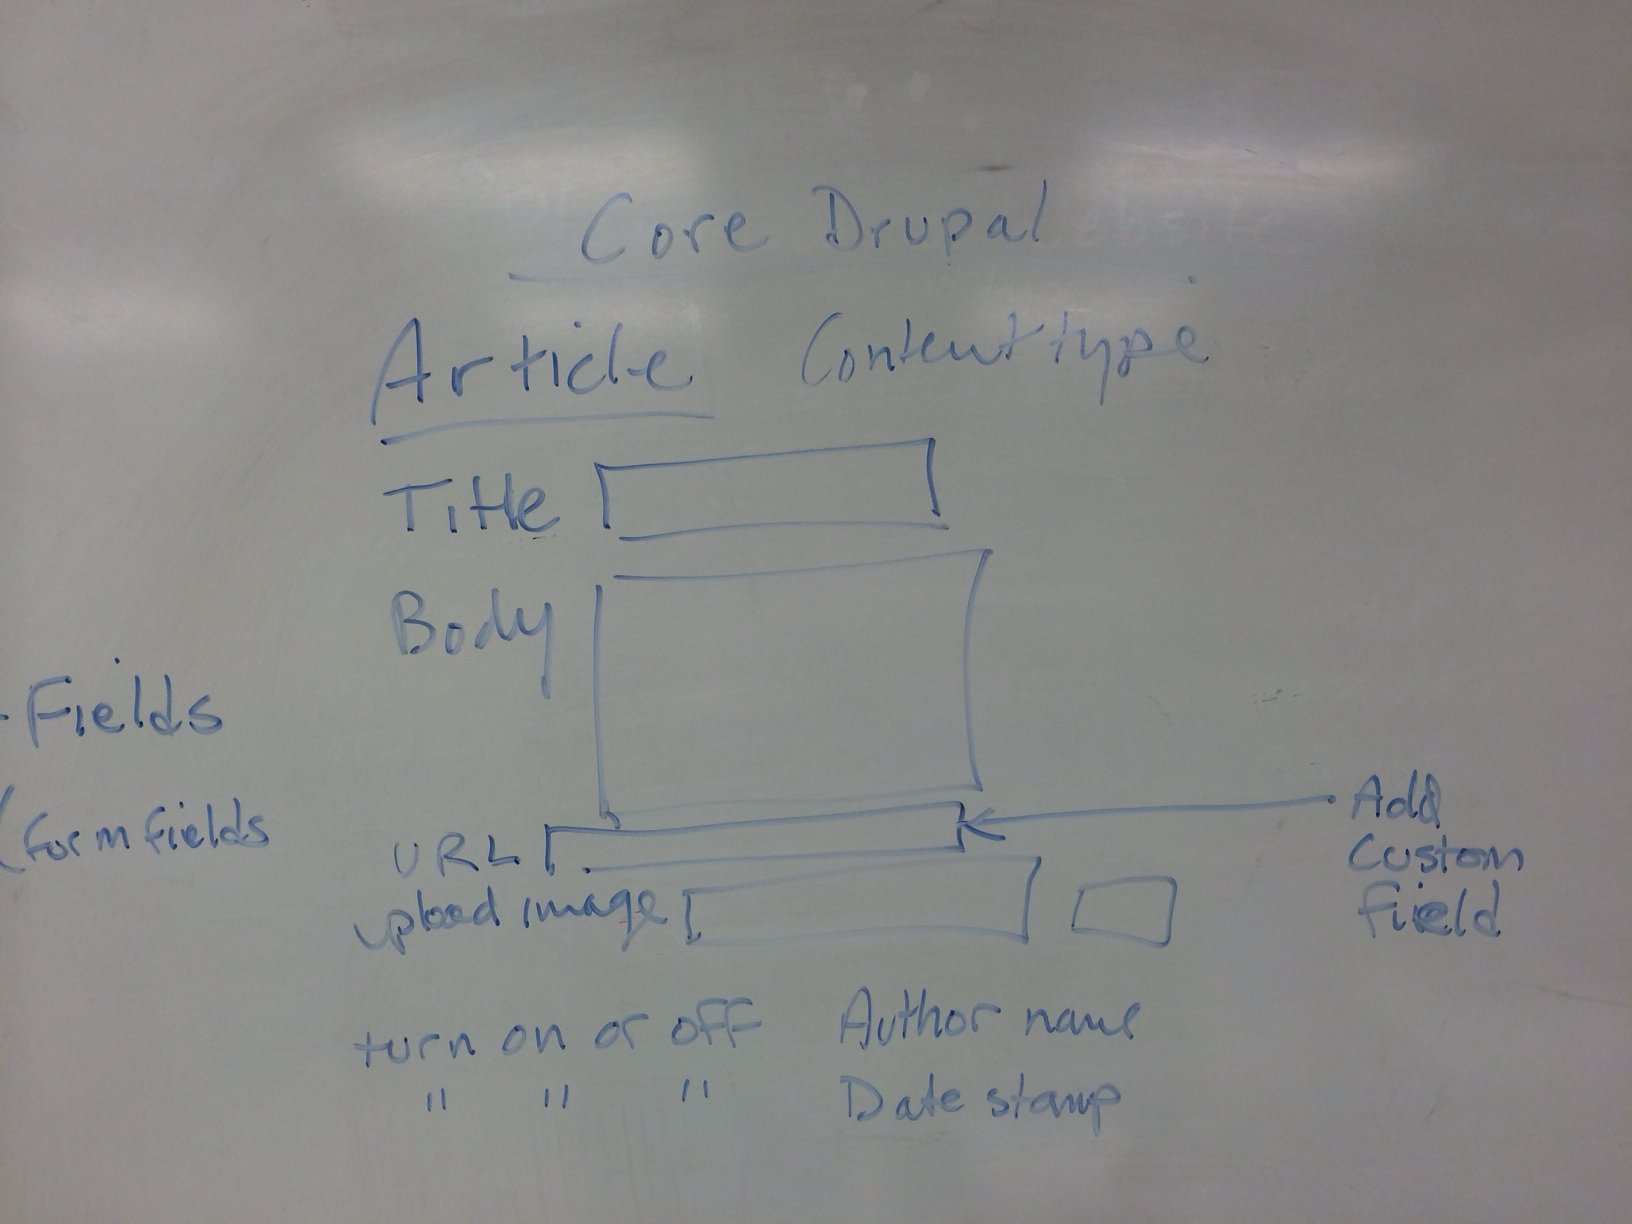 Core Drupal
Article Content type
Title
Body
- Fields
(form fields
URL
upload image
Add
Custom
field
turn on or off Author name
" " " Date stamp